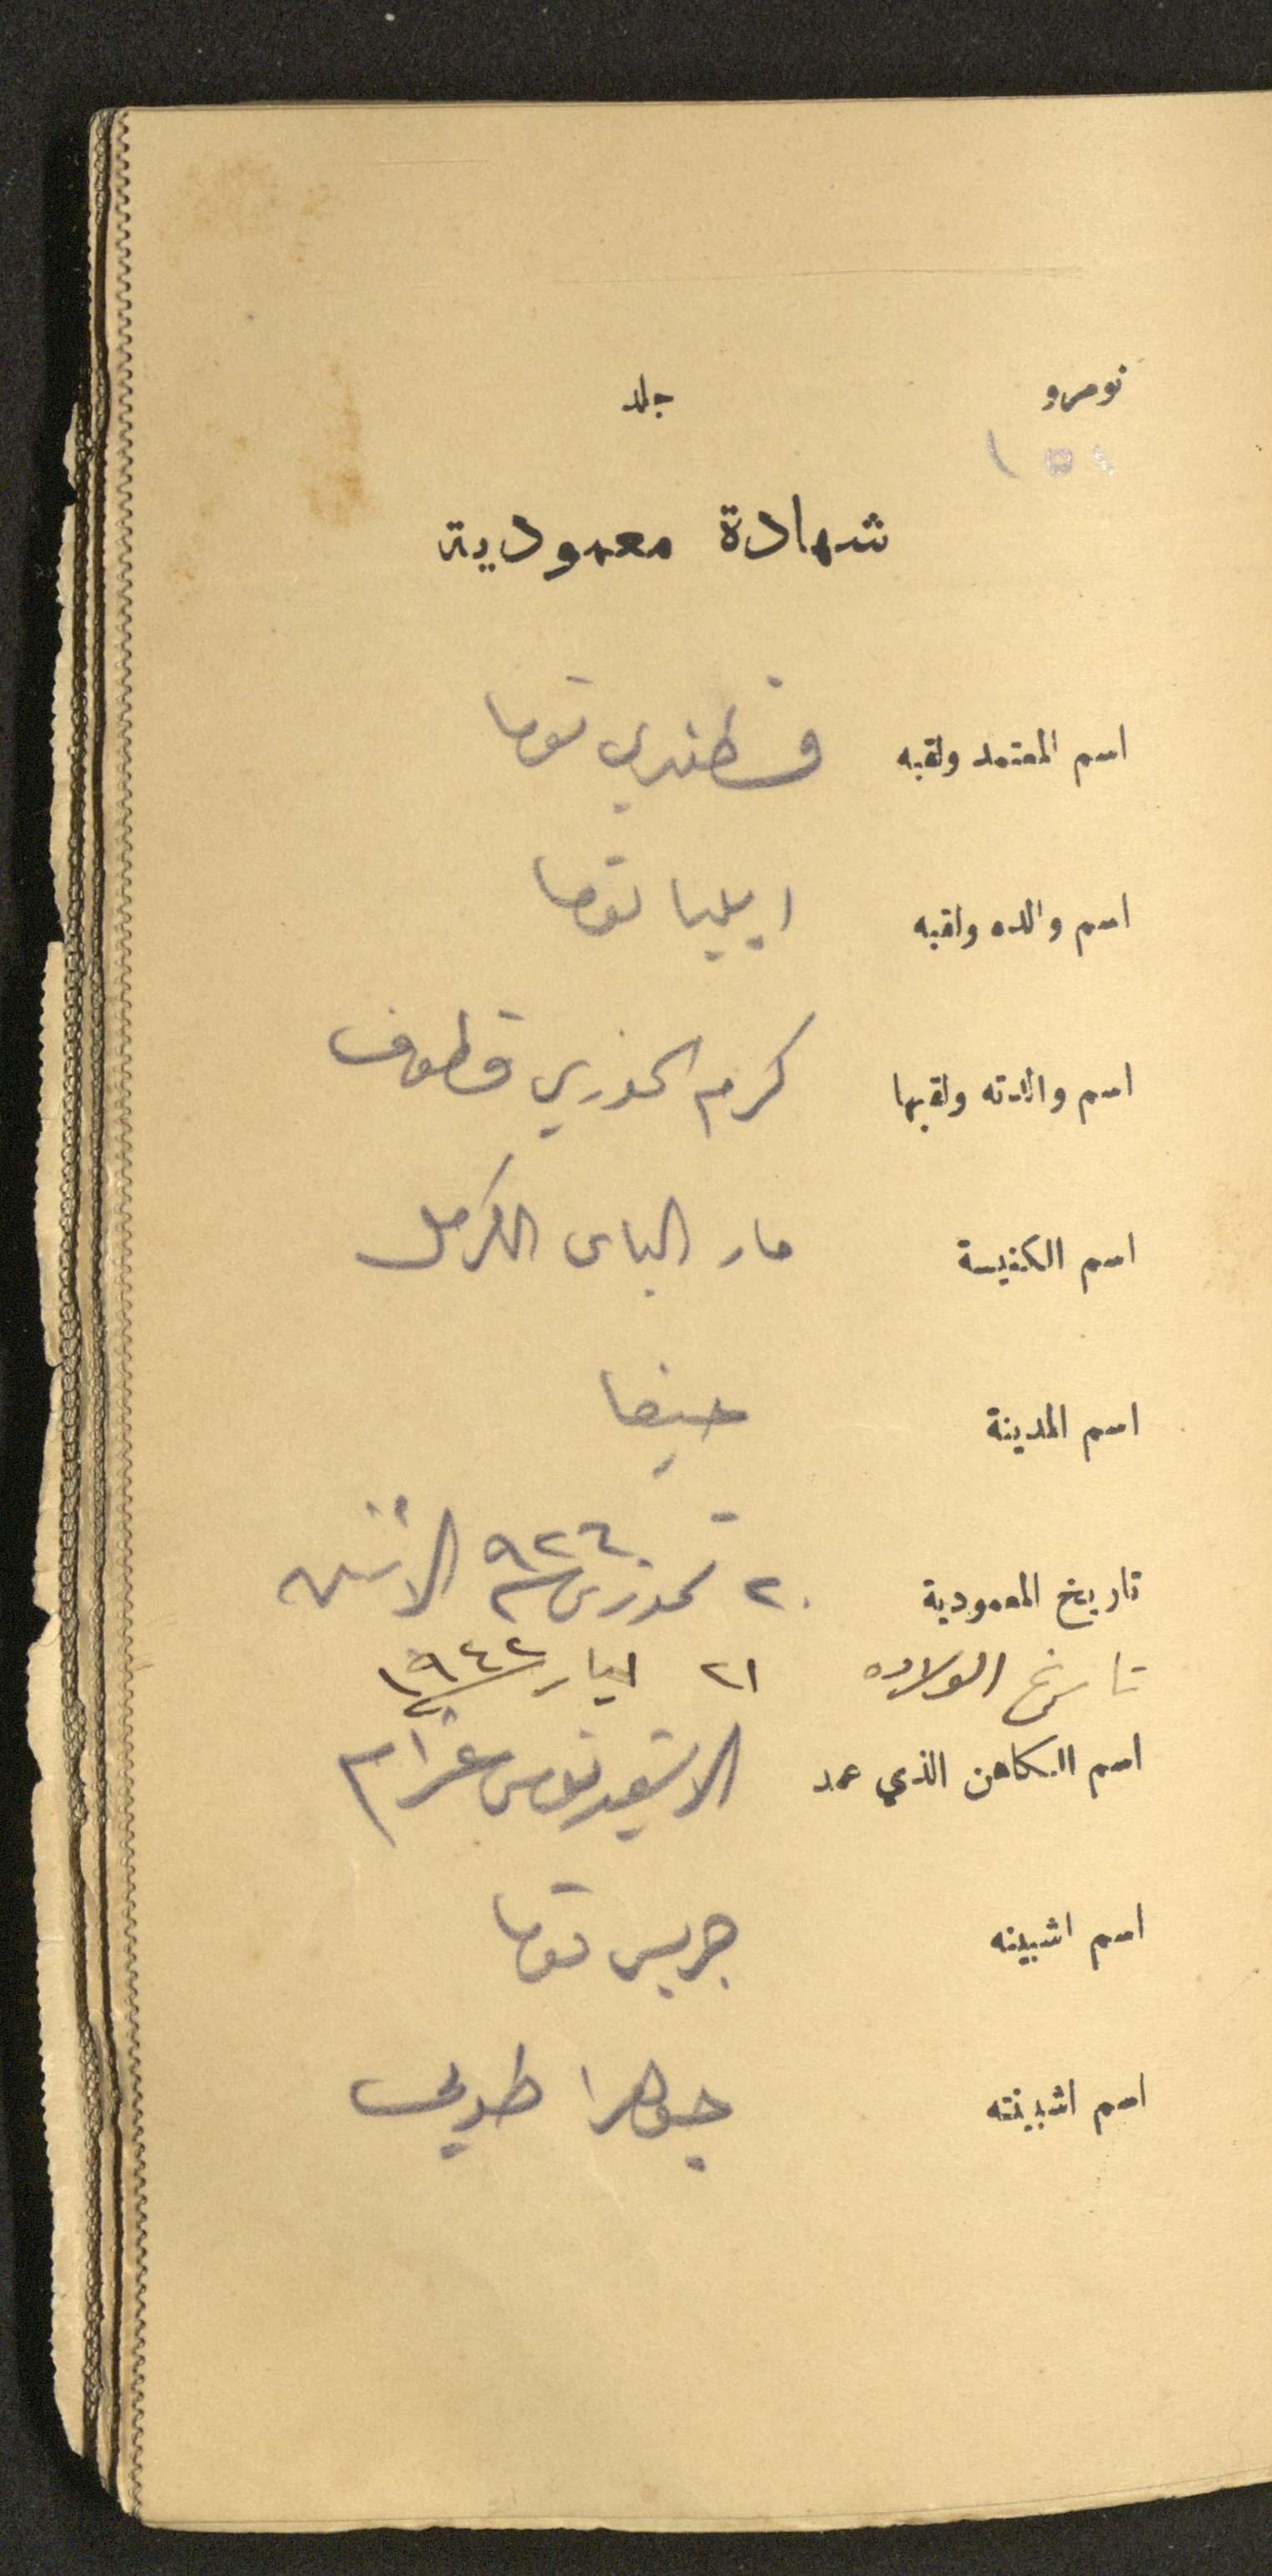 نومرو جلد
١٥١
شهادة معمودية
اسم المعتمد ولقبه قسطندي توما
اسم والده ولقبه ايليا توما
اسم والدته ولقبها كرم الخوري قطوف
اسم الكنيسة مار الياس الكرمل
اسم المدينة حيفا
تاريخ المعمودية ٢٠ تموز الاثنين
تاريخ الولاده ٢١ ايار ١٩٤٢
اسم الكاهن الذي عمد
اسم اشبينه جريس توما
اسم اشبينته جوهرا